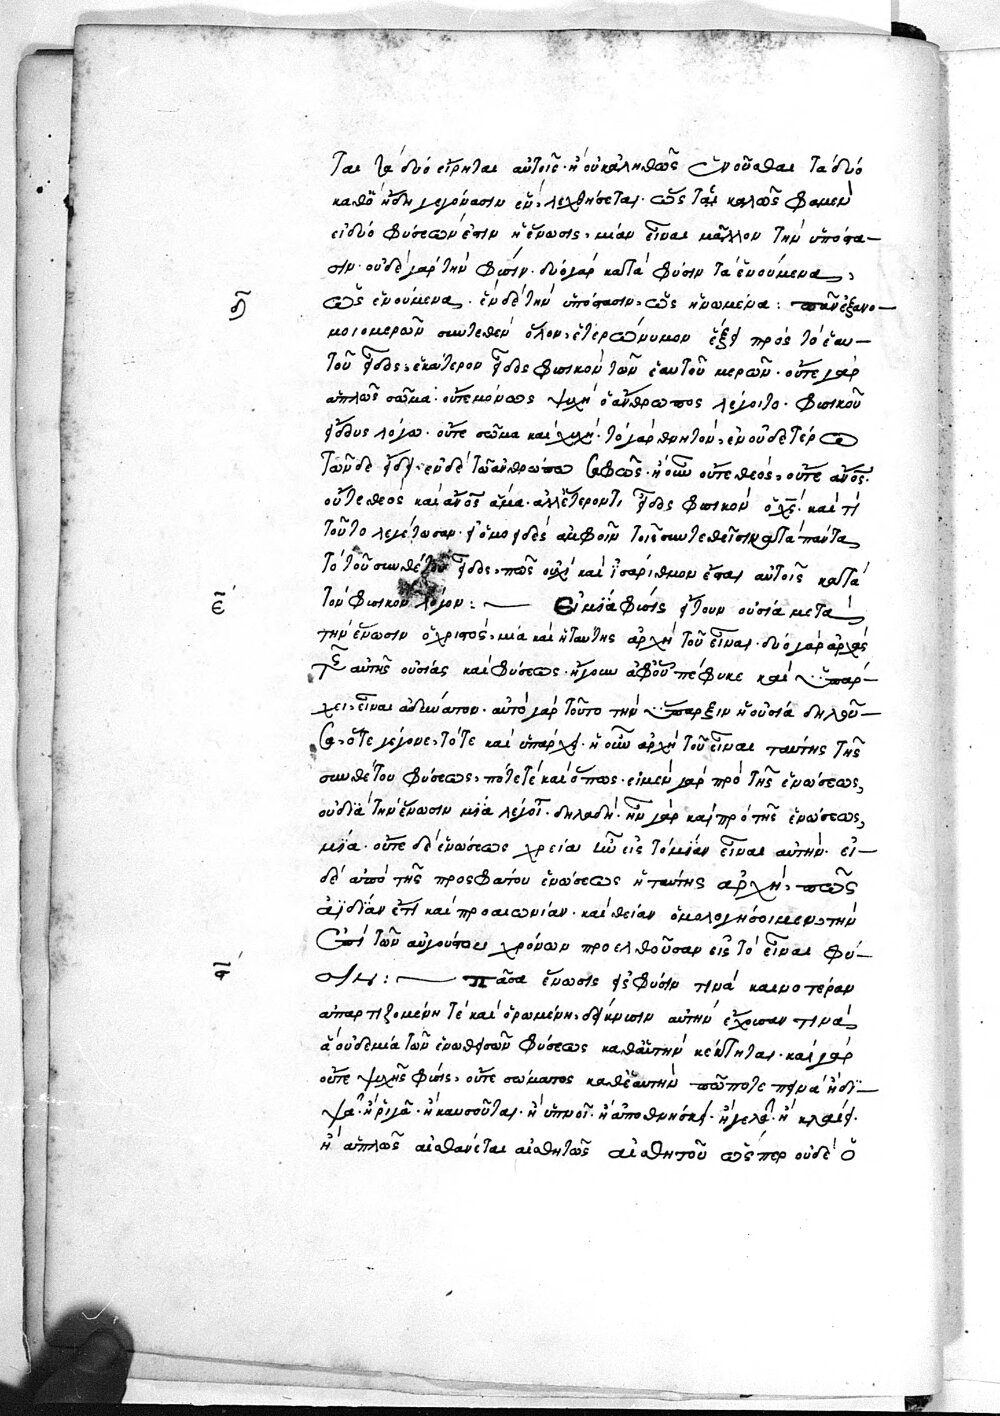 ται τὰ δύο εἴρηται αὐτοῖς· ἢ οὐκ ἀληθῶς ἑνοῦσθαι τὰ δύο
καθὸ ἤδη γεγόνασιν ἓν, λεχθήσεται. ὥς τε καλῶς φαμὲν
εἰ δύο φύσεων ἐστὶν ἡ ἕνωσις, μίαν εἶναι μᾶλλον τὴν ὑπόστα-
σιν· οὐδὲ γὰρ τὴν φύσιν· δύο γὰρ κατὰ φύσιν τὰ ἑνούμενα,
ὡς ἑνούμενα. ἓν δὲ τὴν ὑπόστασιν, ὡς ἡνωμένα: πᾶν ἐξ ἀνο-
δ´
μοιομερῶν συντεθὲν ὅλον, ἑτερώνυμον ἕξει πρὸς τὸ ἑαυ-
τοῦ εἶδος, ἑκάτερον εἶδος φυσικὸν τῶν ἑαυτοῦ μερῶν. οὔτε γὰρ
ἁπλῶς σῶμα· οὔτε μόνως ψυχὴ ὁ ἄνθρωπος λέγοιτο. φυσικοῦ
εἴδους λόγω· οὔτε σῶμα καὶ ψυχή· τὸ γὰρ θνητὸν, ἐν οὐδετέρω
τῶνδε
οὔτε θεὸς καὶ ἄνος ἅμα. ἀλλ' ἕτερόν τι εἶδος φυσικὸν ὁ χς· καὶ τί
τοῦτο λεγέτωσαν. εἰ ὁμοειδὲς ἀμφοῖν τοῖς συντεθεῖσι κατὰ πάντα
τὸ τοῦ συνθέτου εἶδος, πῶς οὐχὶ καὶ ἰσάριθμον ἔσται αὐτοῖς κατὰ
τὸν φυσικὸν λόγον: Εἰ μία φύσις ἤτουν οὐσία μετὰ
ε´
τὴν ἕνωσιν ὁ χριστός, μία καὶ ἡ ταύτης ἀρχὴ τοῦ εἶναι. δύο γὰρ ἀρχὰς
τῆς αὐτῆς οὐσίας καὶ φύσεως· ἤγουν ἀφ' οὗ πέφυκε καὶ ὑπάρ-
χει, εἶναι ἀδύνατον· αὐτὸ γὰρ τοῦτο τὴν ὕπαρξιν ἡ οὐσία δηλοῦ-
σα, ὅτε γέγονε, τότε καὶ ὑπάρχει. ἡ οὖν ἀρχὴ τοῦ εἶναι ταύτης τῆς
συνθέτου φύσεως, πότε τὲ καὶ ὅπως. εἰ μὲν γὰρ πρὸ τῆς ἑνώσεως,
οὐ διὰ τὴν ἕνωσιν μία λέγοιτο δηλαδή· ἦν γὰρ καὶ πρὸ τῆς ἑνώσεως,
μία. οὔτε δὲ ἑνώσεως χρεία ἦν εἰς τὸ μίαν εἶναι αὐτήν. εἰ
δὲ ἀπὸ τῆς προσφάτου ἑνώσεως ἡ ταύτης ἀρχὴ, πῶς
ἀΐδιον ἔτι καὶ προαιωνίαν. καὶ θείαν ὁμολογήσοιμεν, τὴν
ἐπὶ τῶν αὐγούστου χρόνων προελθοῦσαν εἰς τὸ εἶναι φύ-
σιν: πᾶσα ἕνωσις εἰς φύσιν τινὰ καινοτέραν
ϛ´
ἀπαρτιζομένη τὲ καὶ ὁρωμένη, δείκνυσιν αὐτὴν ἔχουσαν τινὰ,
ἃ οὐδεμία τῶν ἑνωθεισῶν φύσεων καθ' αὑτὴν κέκτηται. καὶ γὰρ
οὔτε ψυχῆς φύσις, οὔτε σώματος καθ' ἑαυτὴν πώποτε πεινᾶ ἢ δι-
ψᾶ· ἢ ῥιγᾶ· ἢ καυσοῦται· ἢ ὑπνοῖ· ἢ ἀποθνήσκει· ἢ γελᾶ· ἢ κλαίει.
ἢ ἁπλῶς αἰσθάνεται αἰσθητῶς αἰσθητοῦ ὥσπερ οὐδὲ ὁ